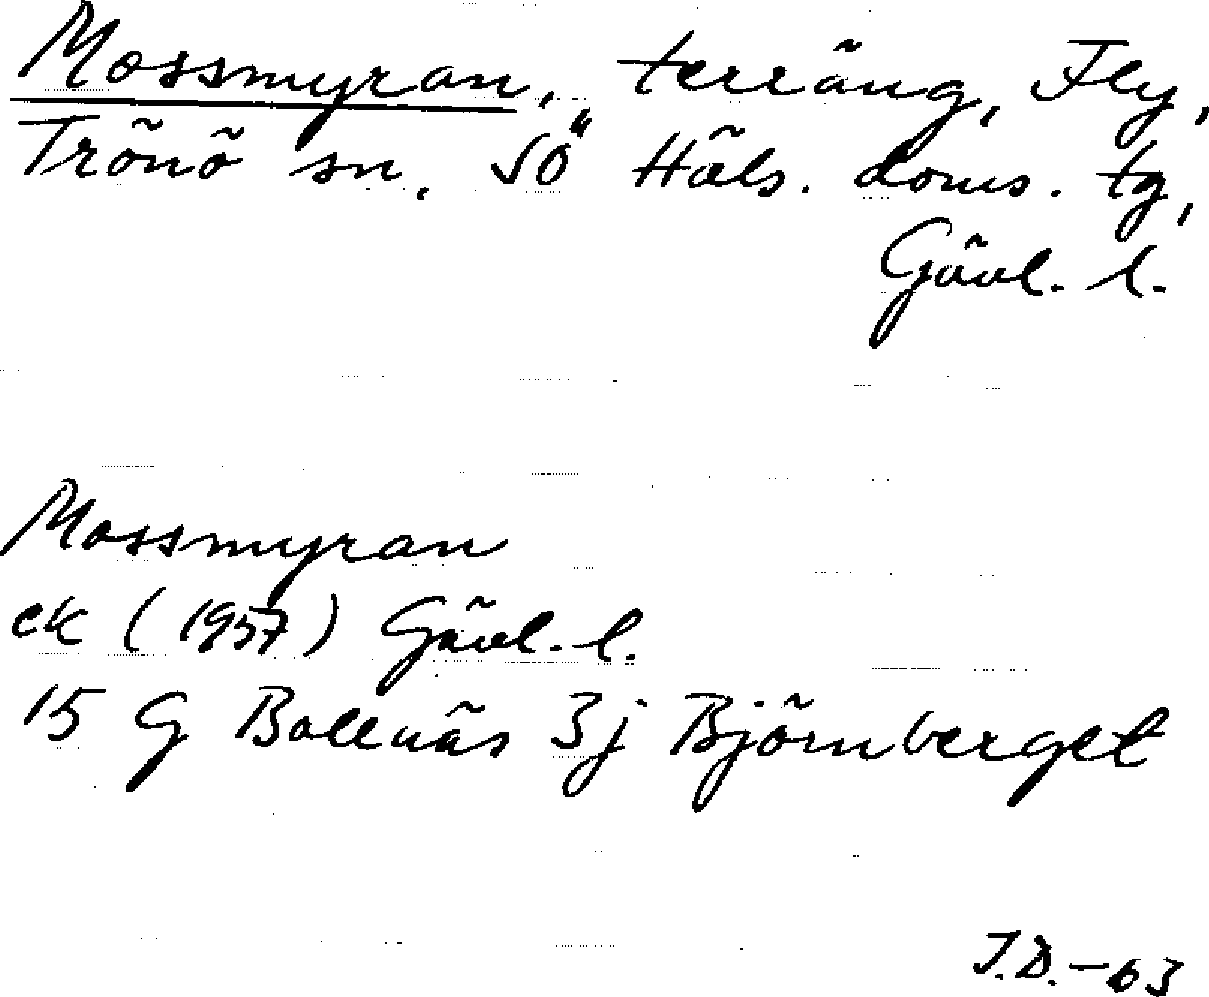 Mossmyran, terräng, Fly,
Trönö sn, SÖ Häls. doms. tg,
Gävl. l.
Mossmyran
ek (1957) Gävl. l.
15 G Bollnäs 3j Björnberget
J.D.-63